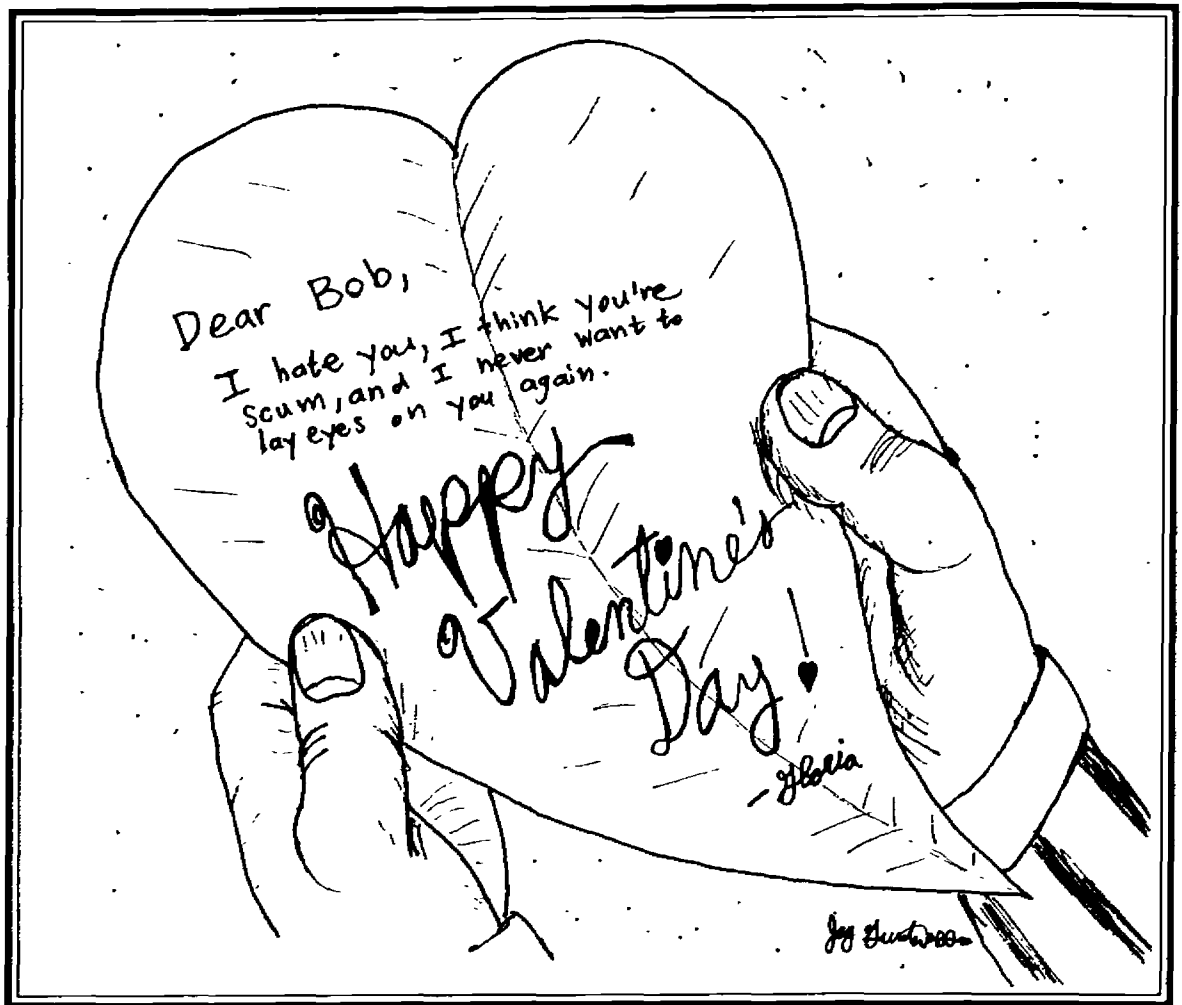 Dear Bob,
I hate you, I think you're
scum, and I never want to
lay eyes on you again.
Happy
Valentine's
Day!
- Gloria